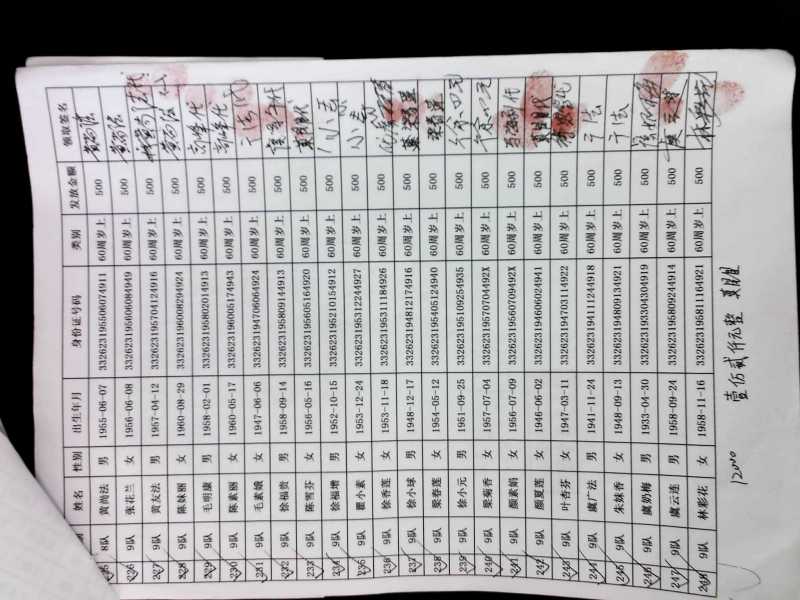 姓名 性别 出生年月 身份证号码 类别 发放金额 领取签名
225 8队 黄尚法 男 1955-06-07 332623195506074911 60周岁上 500
226 9队 张花兰 女 1956-06-08 332623195606084949 60周岁上 500
227 9队 黄友法 男 1957-04-12 332623195704124916 60周岁上 500
228 9队 陈妹丽 女 1960-08-29 332623196008294924 60周岁上 500
229 9队 毛明康 男 1958-02-01 332623195802014913 60周岁上 500
230 9队 陈素丽 女 1960-05-17 332623196005174943 60周岁上 500
231 9队 毛素娥 女 1947-06-06 332623194706064924 60周岁上 500
232 9队 徐福贵 男 1958-09-14 332623195809144913 60周岁上 500
233 9队 陈雪芬 女 1956-05-16 332623195605164920 60周岁上 500
234 9队 徐福增 男 1952-10-15 332623195210154912 60周岁上 500
235 9队 瞿小素 女 1953-12-24 332623195312244927 60周岁上 500 小素
236 9队 徐香莲 女 1953-11-18 332623195311184926 60周岁上 500
237 9队 徐小球 男 1948-12-17 332623194812174916 60周岁上 500
238 9队 梁春莲 女 1954-05-12 332623195405124940 60周岁上 500
239 9队 徐小元 男 1951-09-25 332623195109254935 60周岁上 500 徐小元
240 9队 梁菊香 女 1957-07-04 33262319570704492X 60周岁上 500 徐小元
241 9队 颜素娟 女 1956-07-09 33262319560709492X 60周岁上 500
242 9队 颜夏莲 女 1946-06-02 332623194606024941 60周岁上 500
243 9队 叶杏芬 女 1947-03-11 332623194703114922 60周岁上 500
244 9队 虞广法 男 1941-11-24 332623194111244918 60周岁上 500 广法
245 9队 朱妹香 女 1948-09-13 332623194809134921 60周岁上 500 广法
246 9队 虞奶梅 男 1933-04-30 332623193304304919 60周岁上 500
247 9队 虞云连 男 1958-09-24 332623195809244914 60周岁上 500
248 9队 林彩花 女 1958-11-16 332623195811164921 60周岁上 500
12000 壹万贰仟元整